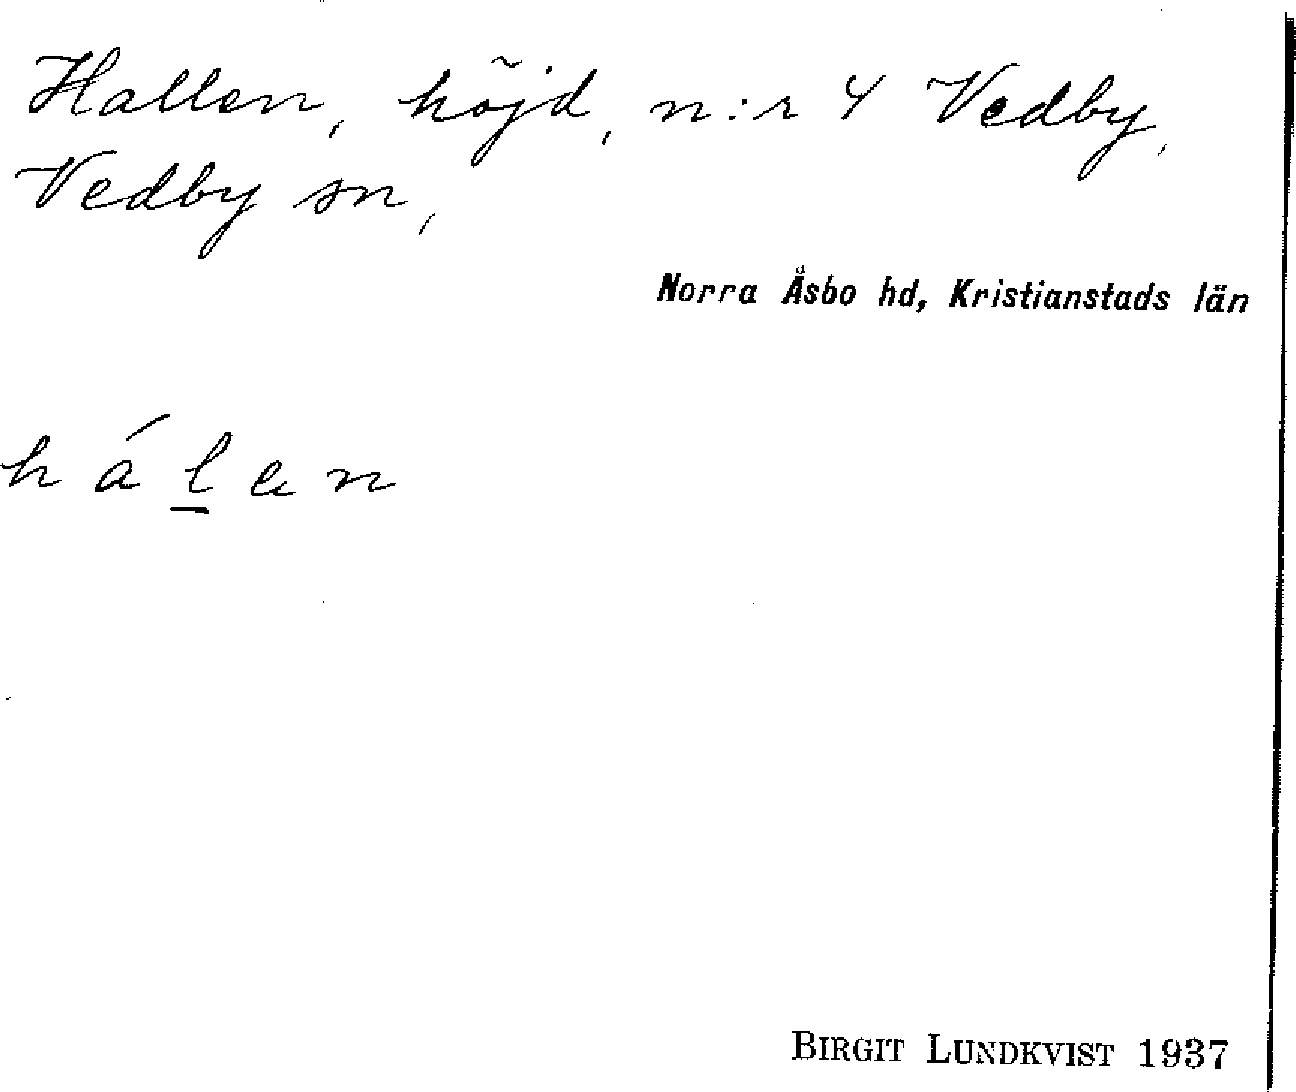 Hallen, höjd, n:r 4 Vedby,
Vedby sn,
Norra Åsbo hd, Kristianstads län
há l̲ en
BIRGIT LUNDKVIST 1937